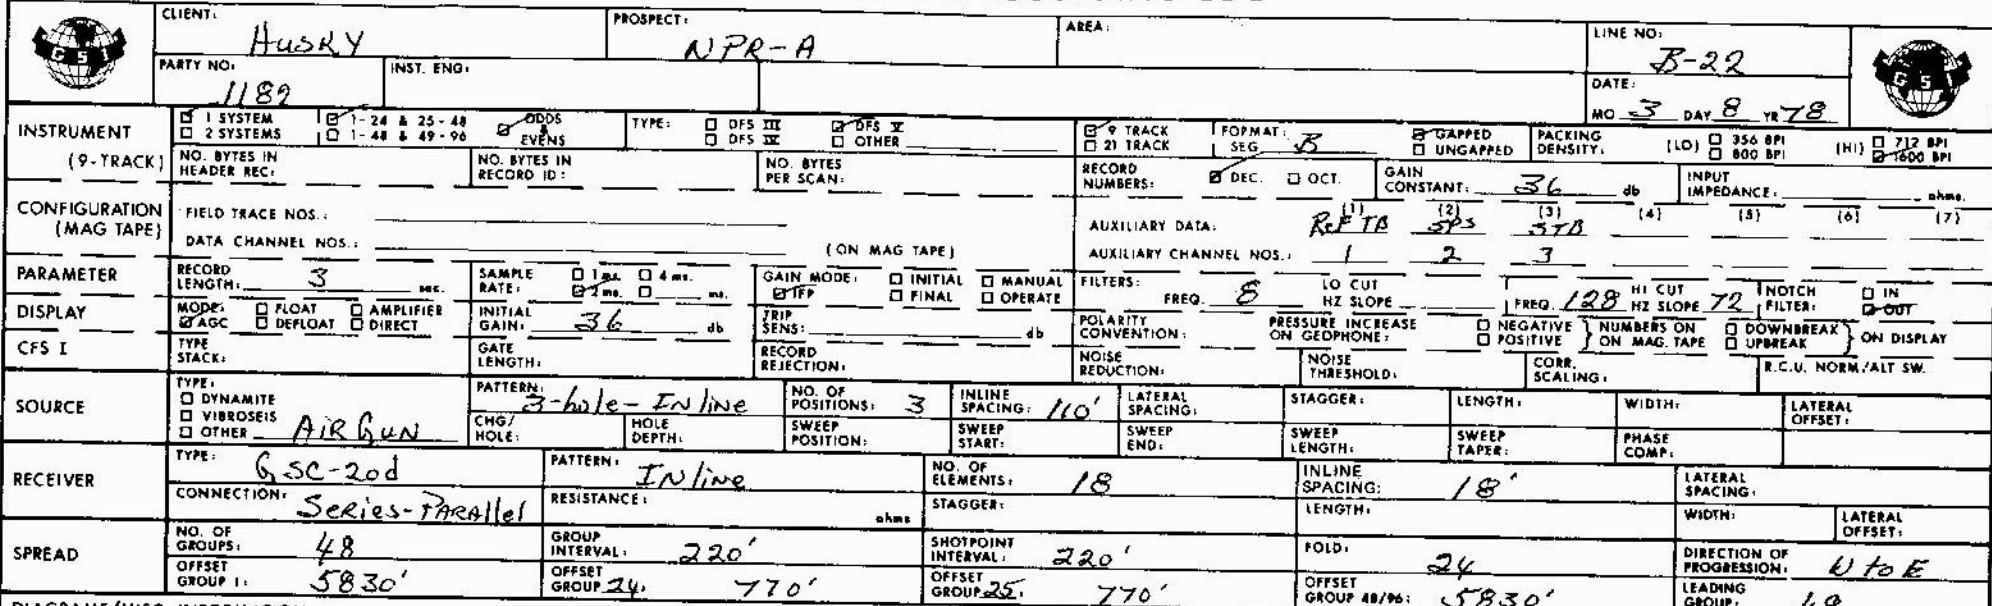 CLIENT: HUSKY PROSPECT: NPR-A AREA: LINE NO: B-22
GSI GSI
PARTY NO: 1182 INST. ENG: DATE: MO 3 DAY 8 YR 78
INSTRUMENT (9-TRACK) ☑ 1 SYSTEM ☑ 1-24 & 25-48 ☑ ODDS & EVENS TYPE: ☐ DFS III ☑ DFS V ☑ 9 TRACK FORMAT: SEG B ☑ GAPPED PACKING DENSITY: (LO) ☐ 356 BPI (HI) ☐ 712 BPI
☐ 2 SYSTEMS ☐ 1-48 & 49-96 ☐ DFS IV ☐ OTHER ☐ 21 TRACK ☐ UNGAPPED ☐ 800 BPI ☑ 1600 BPI
NO. BYTES IN HEADER REC: NO. BYTES IN RECORD ID: NO. BYTES PER SCAN: RECORD NUMBERS: ☑ DEC. ☐ OCT. GAIN CONSTANT: 36 db INPUT IMPEDANCE: ohms.
CONFIGURATION (MAG TAPE) FIELD TRACE NOS.: AUXILIARY DATA: (1) REF TB (2) SPS (3) STB (4) (5) (6) (7)
DATA CHANNEL NOS.: (ON MAG TAPE) AUXILIARY CHANNEL NOS.: 1 2 3
PARAMETER RECORD LENGTH: 3 sec. SAMPLE RATE: ☐ 1 ms. ☐ 4 ms. ☑ 2 ms. ☐ ms. GAIN MODE: ☐ INITIAL ☐ MANUAL ☑ IFP ☐ FINAL ☐ OPERATE FILTERS: FREQ. 8 LO CUT HZ SLOPE FREQ. 128 HI CUT HZ SLOPE 72 NOTCH FILTER: ☐ IN ☑ OUT
DISPLAY MODE: ☐ FLOAT ☐ AMPLIFIER ☑ AGC ☐ DEFLOAT ☐ DIRECT INITIAL GAIN: 36 db TRIP SENS: db POLARITY CONVENTION: PRESSURE INCREASE ON GEOPHONE: ☐ NEGATIVE ☐ POSITIVE } NUMBERS ON ON MAG. TAPE ☐ DOWNBREAK ☐ UPBREAK } ON DISPLAY
CFS I TYPE STACK: GATE LENGTH: RECORD REJECTION: NOISE REDUCTION: NOISE THRESHOLD: CORR. SCALING: R.C.U. NORM/ALT SW.
SOURCE TYPE: ☐ DYNAMITE ☐ VIBROSEIS ☐ OTHER AIR GUN PATTERN: 3-hole-INline NO. OF POSITIONS: 3 INLINE SPACING: 110' LATERAL SPACING: STAGGER: LENGTH: WIDTH: LATERAL OFFSET:
CHG/HOLE: HOLE DEPTH: SWEEP POSITION: SWEEP START: SWEEP END: SWEEP LENGTH: SWEEP TAPER: PHASE COMP:
RECEIVER TYPE: GSC-20d PATTERN: INline NO. OF ELEMENTS: 18 INLINE SPACING: 18' LATERAL SPACING:
CONNECTION: SERIES-PARAllel RESISTANCE: ohms STAGGER: LENGTH: WIDTH: LATERAL OFFSET:
SPREAD NO. OF GROUPS: 48 GROUP INTERVAL: 220' SHOTPOINT INTERVAL: 220' FOLD: 24 DIRECTION OF PROGRESSION: W to E
OFFSET GROUP 1: 5830' OFFSET GROUP 24: 770' OFFSET GROUP 25: 770' OFFSET GROUP 48/96: 5830' LEADING GROUP: